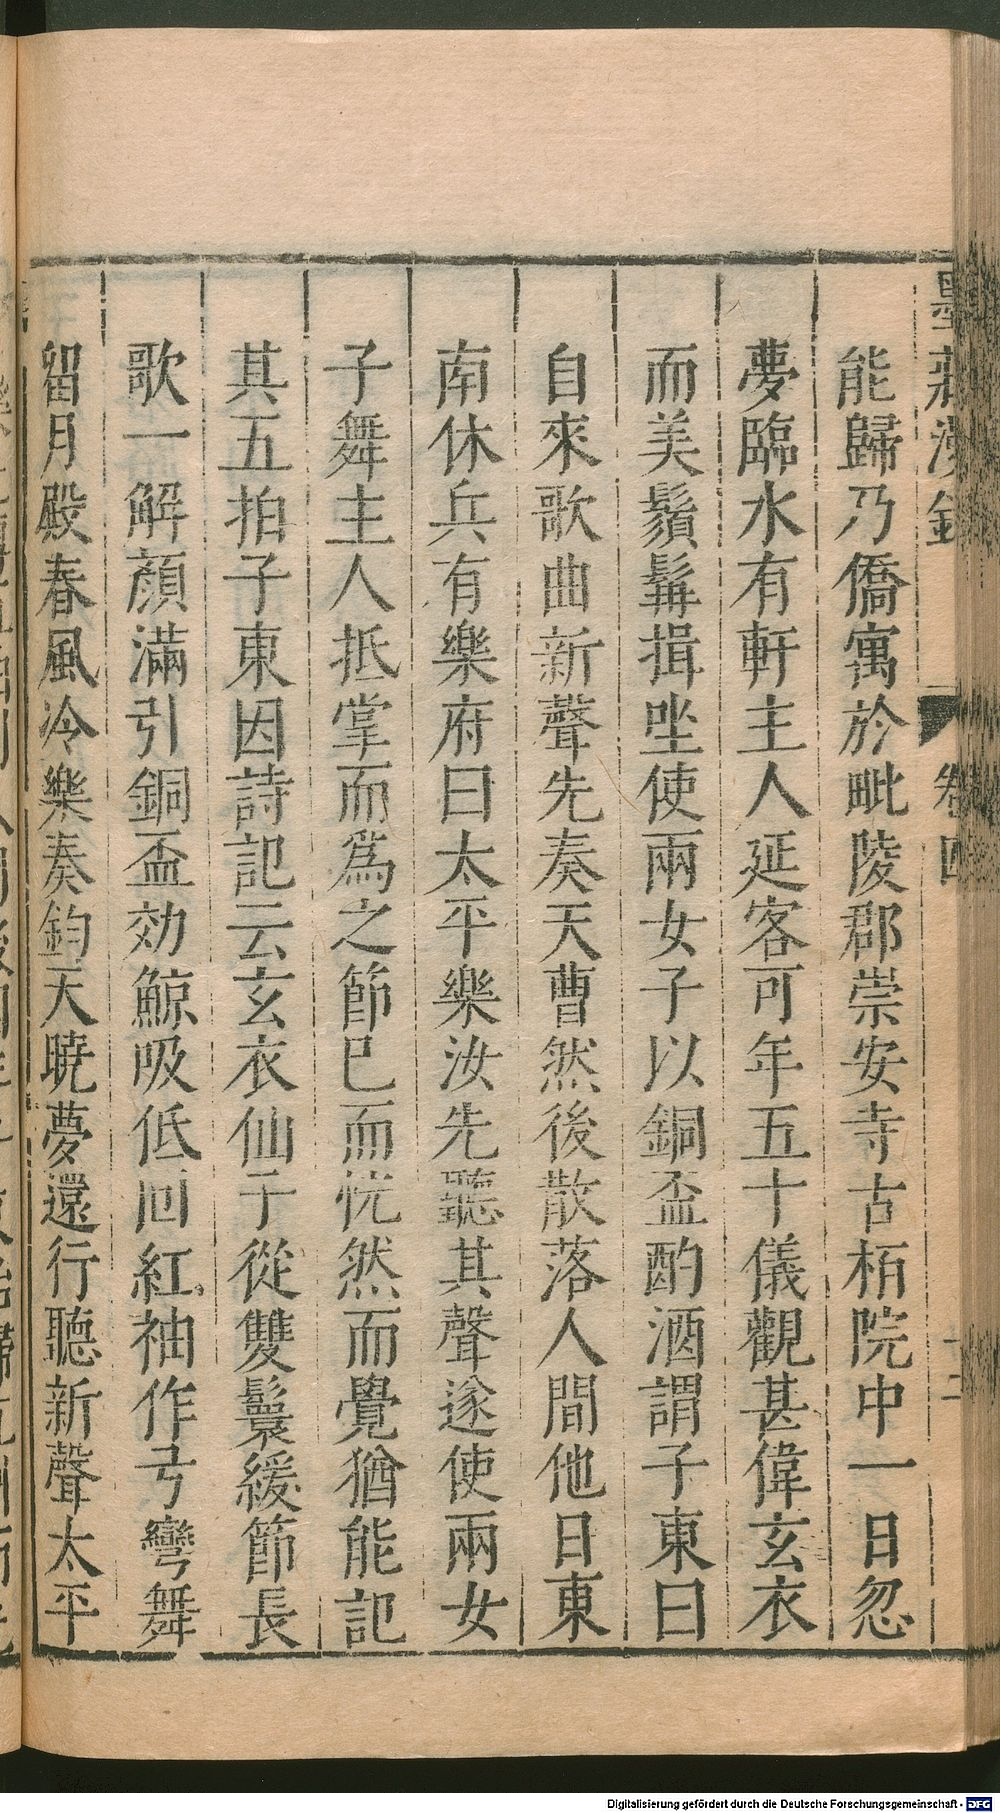 墨莊漫錄
卷四
十二
能歸乃僑寓於毗陵郡崇安寺古栢院中一日忽
夢臨水有軒主人延客可年五十儀觀甚偉玄衣
而美鬚髯揖坐使兩女子以銅盃酌酒謂子東曰
自來歌曲新聲先奏天曹然後散落人間他日東
南休兵有樂府曰太平樂汝先聽其聲遂使兩女
子舞主人抵掌而爲之節已而恍然而覺猶能記
其五拍子東因詩記云玄衣仙子從雙鬟緩節長
歌一解顔滿引銅盃効鯨吸低回紅袖作弓彎舞
留月殿春風冷樂奏鈞天曉夢還行聽新聲太平
Digitalisierung gefördert durch die Deutsche Forschungsgemeinschaft - DFG